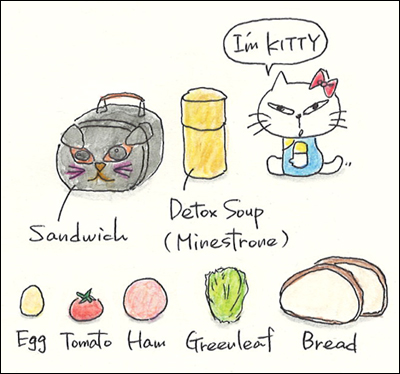 I'm KITTY
Sandwich
Detox Soup
(Minestrone)
Egg
Tomato
Ham
Greenleaf
Bread